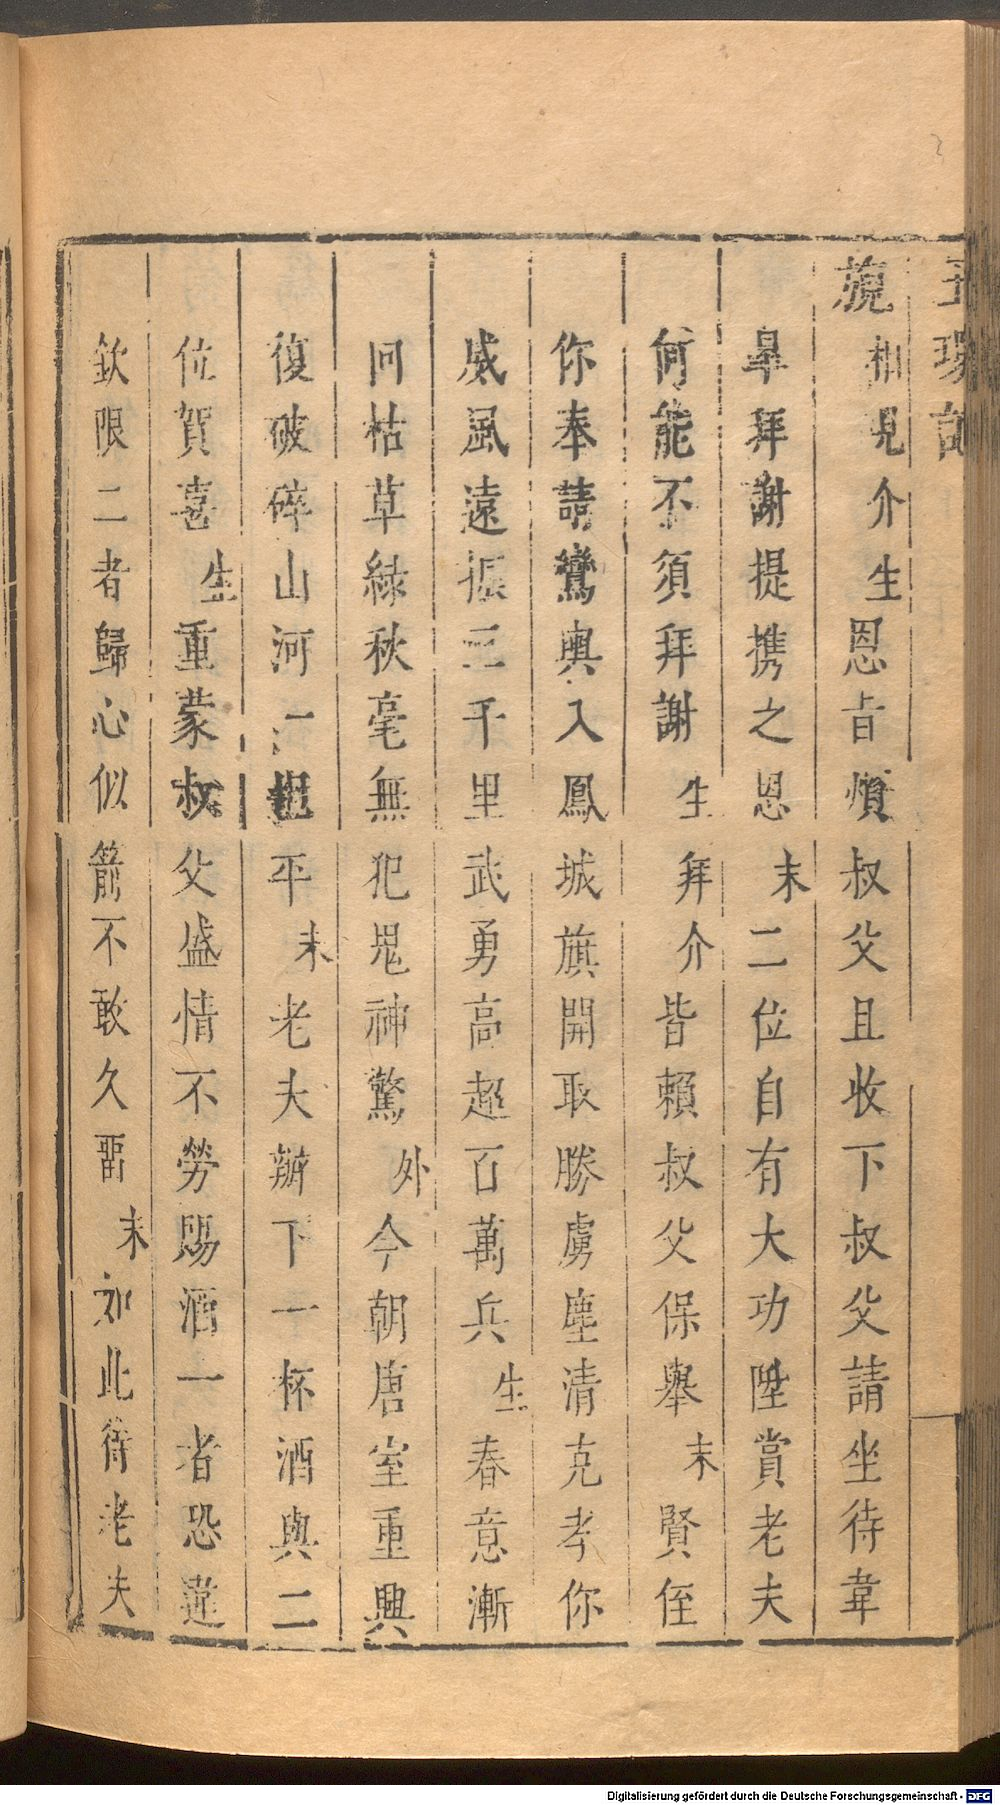 玉環記
旎相見介生恩旨煩叔父且收下叔父請坐待韋
臯拜謝提携之恩末二位自有大功陞賞老夫
何能不須拜謝生拜介皆賴叔父保舉末賢侄
你奉請鸞輿入鳳城旗開取勝虜塵清克孝你
威風遠振三千里武勇高超百萬兵生春意漸
回枯草綠秋毫無犯鬼神驚外今朝唐室重興
復破碎山河一担平末老夫辦下一杯酒與二
位賀喜生重蒙叔父盛情不勞賜酒一者恐違
欽限二者歸心似箭不敢久畱末如此待老夫
Digitalisierung gefördert durch die Deutsche Forschungsgemeinschaft - DFG